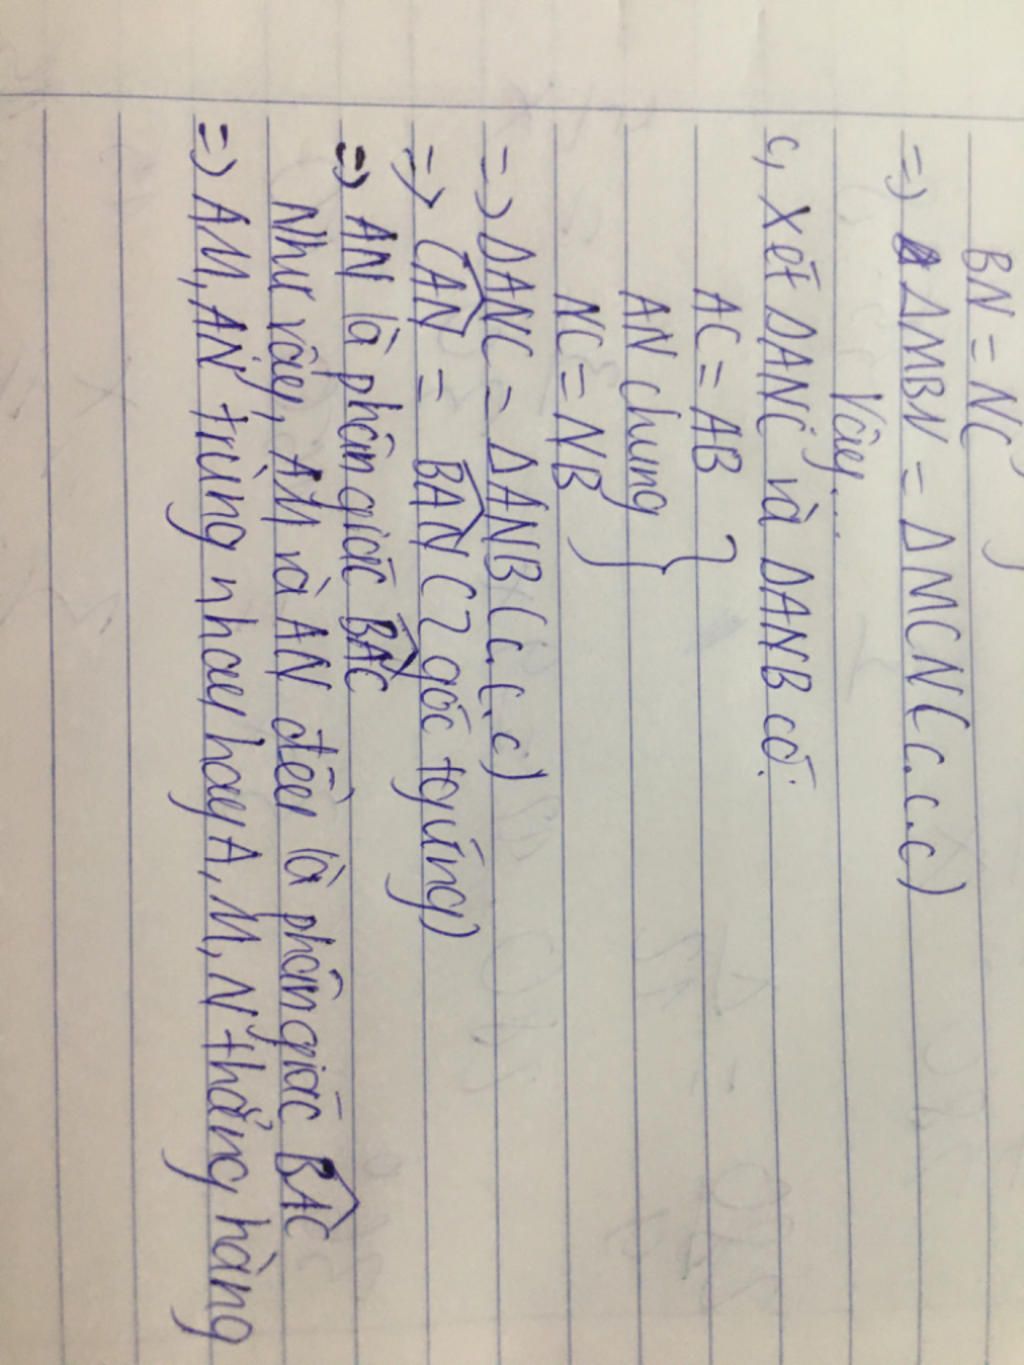 BN = NC
=> ΔMBN = ΔMCN (c.c.c)
Vậy...
c, Xét ΔANC và ΔANB có:
AC = AB
AN chung
NC = NB
=> ΔANC = ΔANB (c.c.c)
=> CAN = BAN (2 góc tg ứng)
=> AN là phân giác BAC
Như vậy, AM và AN đều là phân giác BAC
=> AM, AN trùng nhau hay A, M, N thẳng hàng